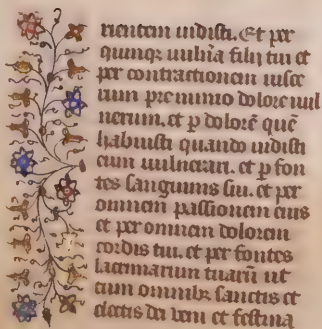 rientem uidisti. Et per
quinqꝫ uulnɑ̃ filij tui et
per contractionem uisce
rum pre nimio dolore uul
nerum. et p̱ dolorẽ quẽ
habuisti quando uidisti
eum uulnerari. et p̱ fon
tes sanguinis sui. et per
omnem passionem eius
et per omnem dolorem
cordis tui. et per fontes
lacrimarum tuarũ ut
cum omnibꝫ sanctis et
electis dei veni et festina